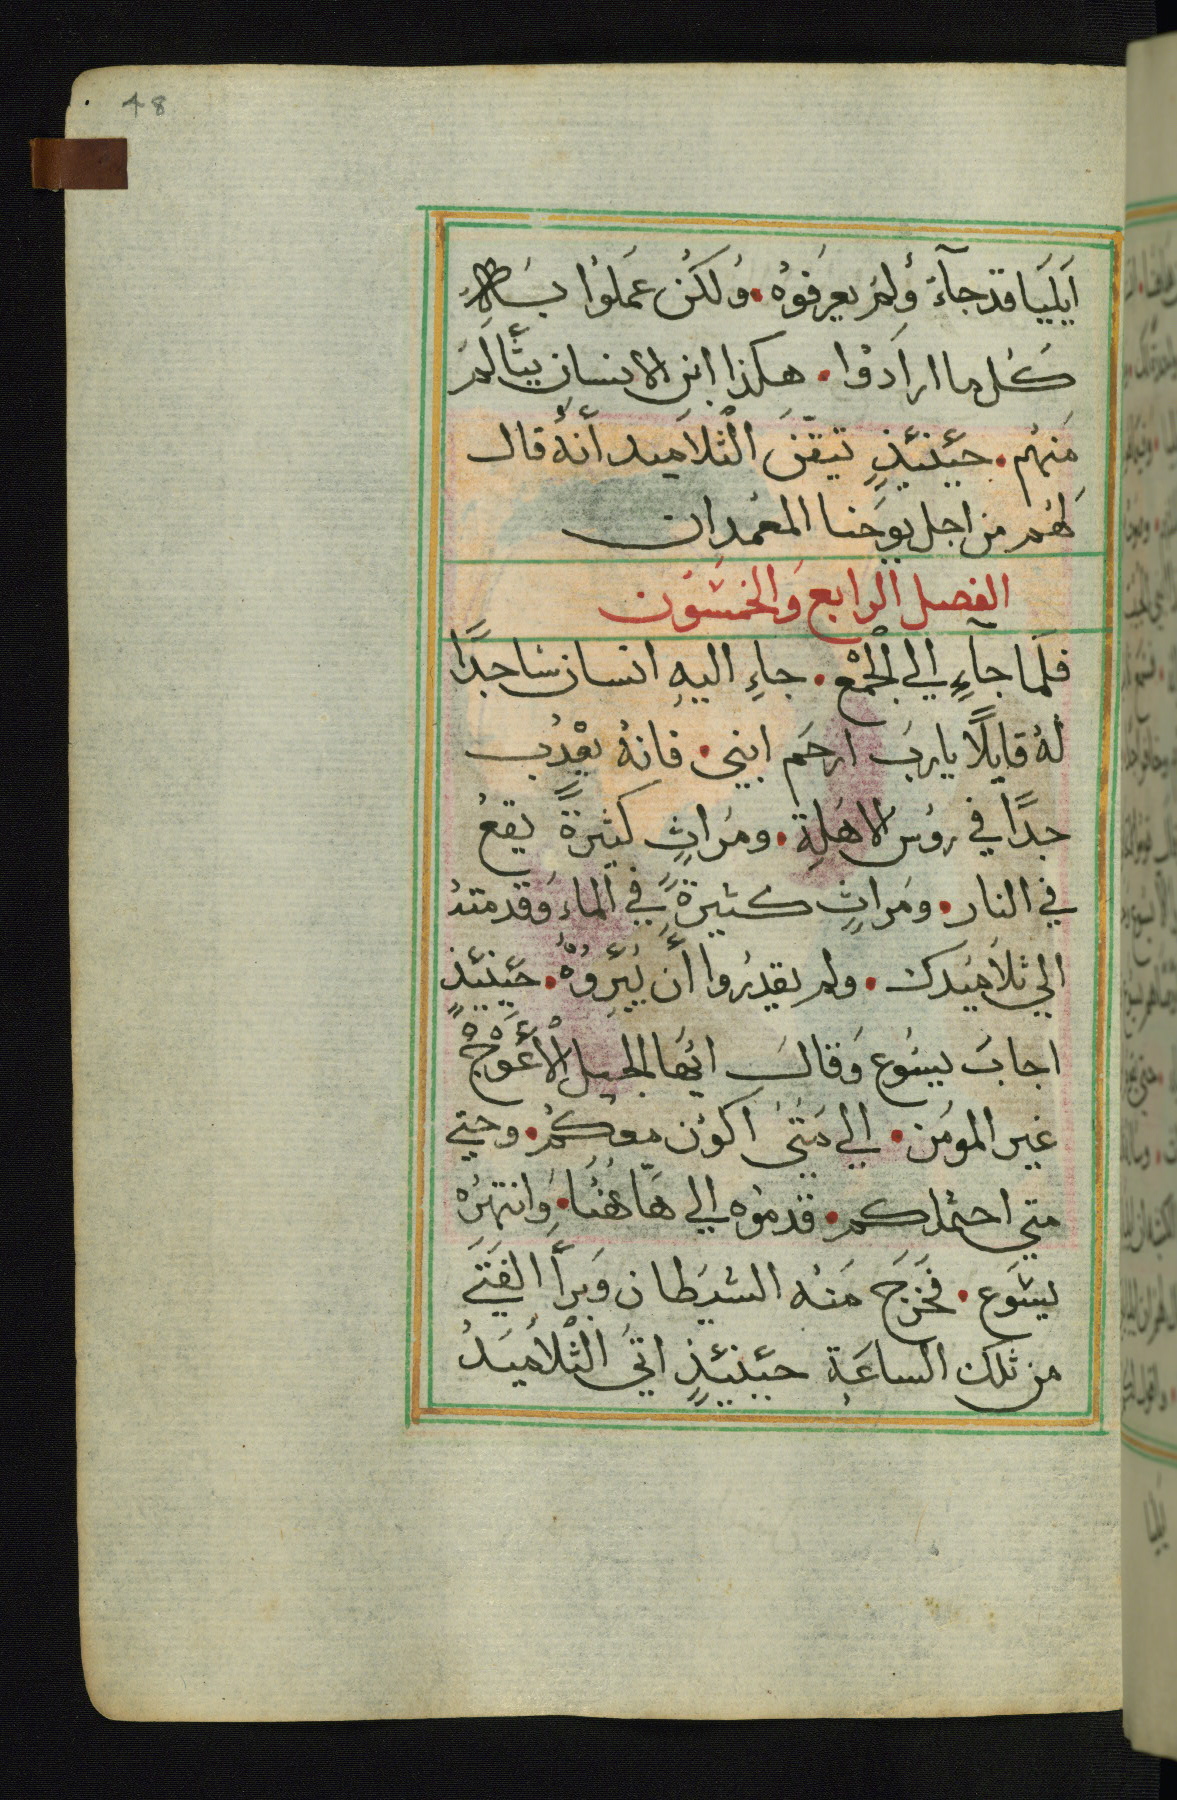 48
ايَليَا قد جآءَ وُلمَ يعرَفوُه • وُلكَنُ عمَلوُا بهَ
كَل ما ارادَوُا • هكذا ابن الانسان يتَألَمَ
مَنهُم • حيَنيَئذٍ تيَقنَ الثلاميد أنهُ قال
لهَُم من اجل يوُحَنا المعَمدان
الفصل الرابع وَالخمسَون
فلَما جآءِ الي الجمْع • جاءِ اليهِ انسان ساجدًا
لهُ قايِلًا يا ربَ ارحَم ابني • فانهُ يعْدب
جدًا في روُس الاهَلةِ • ومرَاثٍ كثيرةً يقعُ
في النار • ومَراثٍ كثيرةً في الماءَ وَقدمتهُ
الي ثلاميَدك • ولم يقدِرُوا أن يُبَرِوُهْ • حيَنيَئذٍ
اجابَ يسَوع وَقالَ ايهَا الجيل الأعْوَجْ
غير المومَن • الي مَتيَ اكوُن معكمُ • وحتيَ
متي احتملكم • قدموُه الي هَاهُنُا • وَانتهرَه
يسَوَع • فَخَرَجَ مَنه الشيَطان وَبرأَ الفَتيَ
من ثلك الساعَةِ حيَنيَئذٍ اتيَ الثلاميَدُ